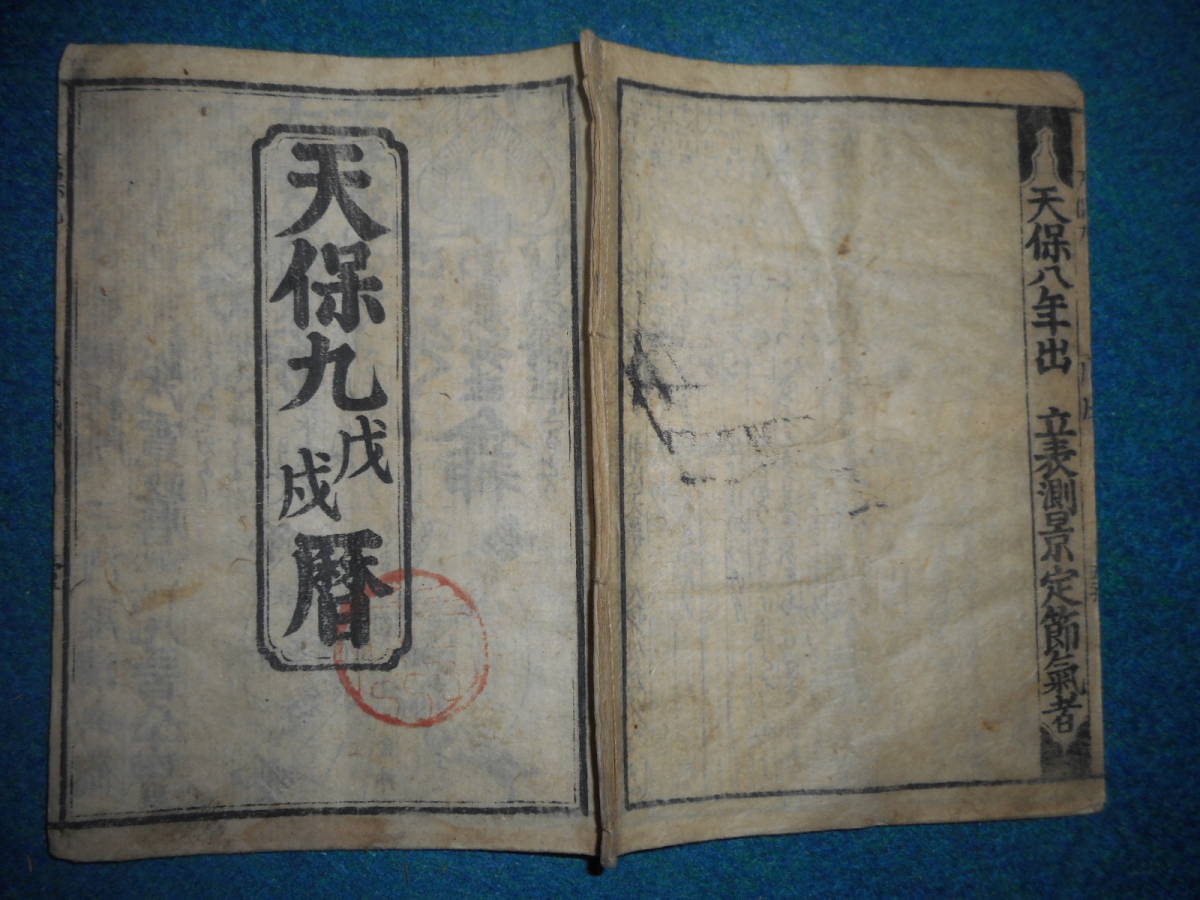 天保八年出 立表測景定節氣者
天保九戊戌暦